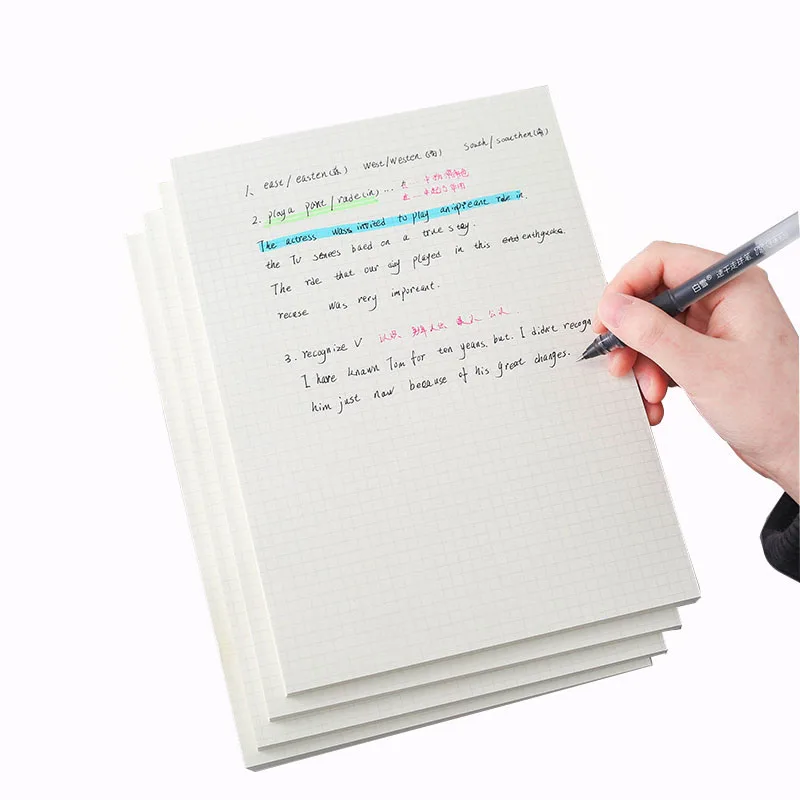 1、east/easten(东) West/Westen(西) South/soucthen(南)
2. play a part/rade(in)... 在…中扮演角色
在…中起作用
The actress wass invited to play an inpireant role in.
the TV stares baed on a true stay.
The rde that our ajy played in this enthquake.
recese was very imporeant.
3. recognize V 认识,
I have knawn Tom for ten yeans. but. I didn't recogn
him just naw because of his great changes.
白雪® 速干走珠笔